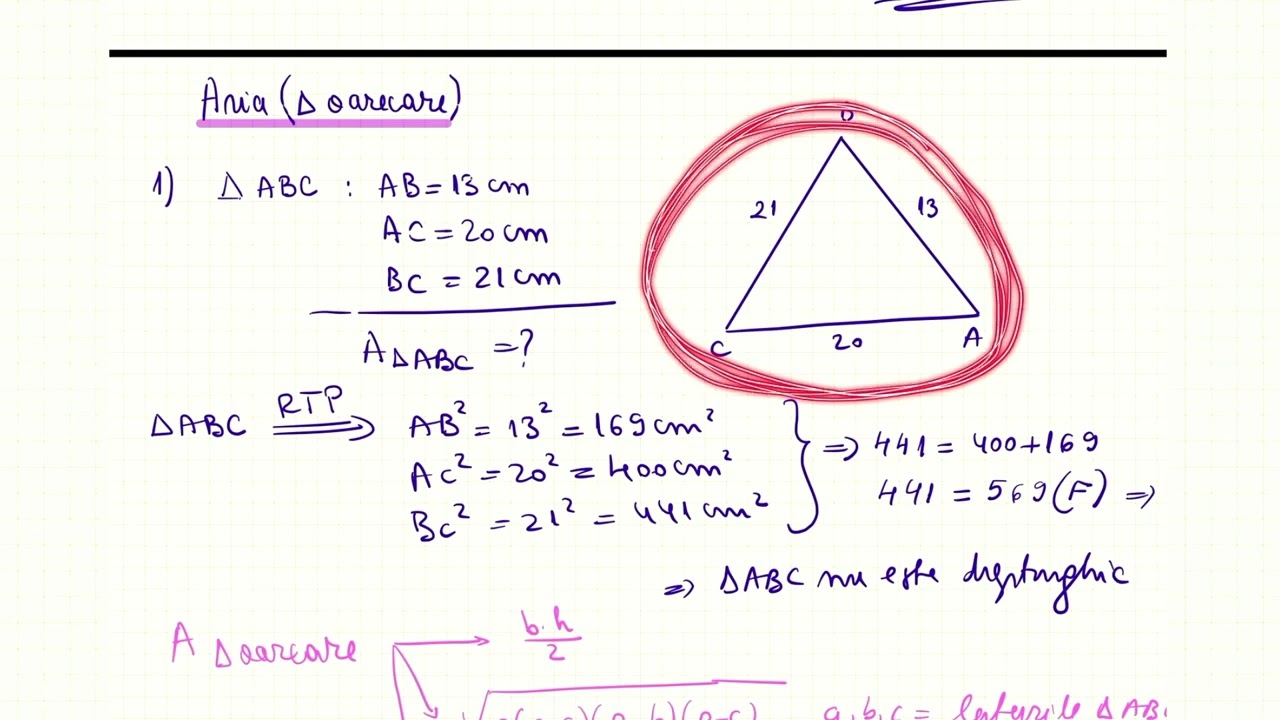 Aria (Δ oarecare)
1) Δ ABC : AB = 13 cm
AC = 20 cm
BC = 21 cm
A ΔABC = ?
21
13
C
20
A
ΔABC RTP ⟹ AB² = 13² = 169 cm²
AC² = 20² = 400 cm²
BC² = 21² = 441 cm²
⇒ 441 = 400+169
441 = 569 (F) ⇒
⇒ ΔABC nu este dreptunghic
A Δoarecare → b.h/2
a,b,c = laturile Δ AB